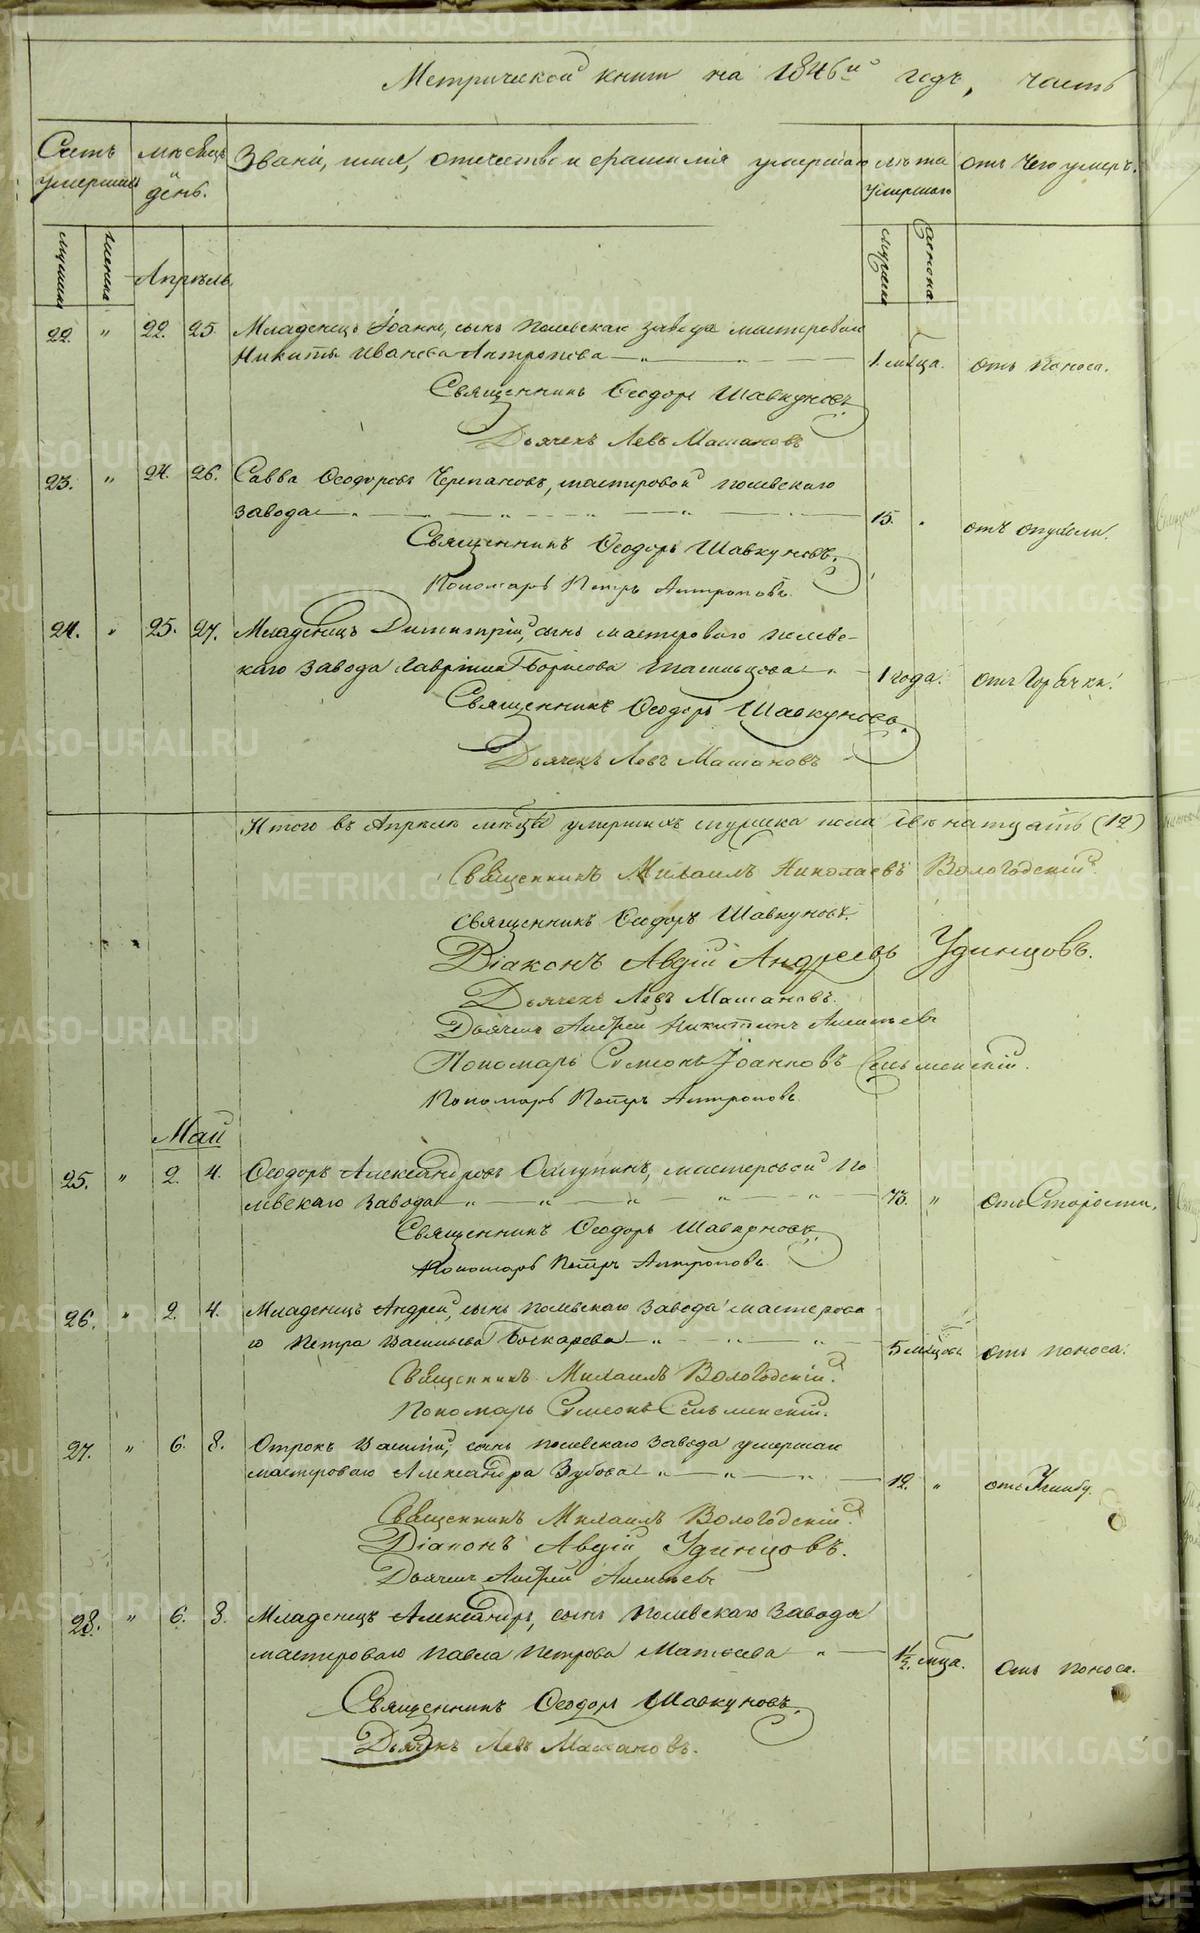 Метрической книги на 1846й годъ, часть
Счетъ умершихъ
мѣсяцъ и день.
Званіе, имя, отечество и фамилія умершаго
лѣта умершаго
отъ чего умеръ.
мужеска
женска
Апрѣль
мужеска
женска
22. " 22. 25. Младенецъ Іоаннъ, сынъ Полевскаго завода мастероваго
Никиты Иванова Антропова — " — 1. мѣсца. отъ поноса.
Священникъ Ѳеодоръ Шавкуновъ.
Дьячекъ Левъ Машановъ
23. " 24. 26. Савва Ѳеодоровъ Черепановъ, мастеровой полевскаго
завода — " — " — " — 15. " отъ опухоли.
Священникъ Ѳеодоръ Шавкуновъ.
Пономарь Петръ Антроповъ.
24. " 25. 27. Младенецъ Димитрій, сынъ мастероваго полевс-
каго завода Борисова — " — 1 года. отъ Горячки.
Священникъ Ѳеодоръ Шавкуновъ.
Дьячекъ Левъ Машановъ
Итого въ Апрѣлѣ мѣсяцѣ умершихъ мужеска пола двѣнатцать (12)
Священникъ Михаилъ Николаевъ Вологодскій.
Священникъ Ѳеодоръ Шавкуновъ.
Діаконъ Авдій Андреевъ Удинцовъ.
Дьячекъ Левъ Машановъ.
Дьячекъ Андрей Никитинъ
Пономарь Симеонъ Іоанновъ Сельменскій.
Пономарь Петръ Антроповъ.
Май
25. " 2. 4. Ѳеодоръ Александровъ мастеровой По
левскаго завода — " — " — " — " — 73. " отъ Старости.
Священникъ Ѳеодоръ Шавкуновъ.
Пономарь Петръ Антроповъ.
26. " 2. 4. Младенецъ Андрей, сынъ полевскаго завода мастерова
го Петра Васильева — " — " — " — 5 мѣсцовъ отъ поноса.
Священникъ Михаилъ Вологодскій.
Пономарь Симеонъ Сельменскій.
27. " 6. 8. Отрокъ Василій, сынъ полевскаго завода умершаго
мастероваго Александра Зубова — " — " — " — 12. "
Священникъ Михаилъ Вологодскій.
Діаконъ Авдій Удинцовъ.
Дьячекъ Андрей
28. " 6. 8. Младенецъ Александръ, сынъ Полевскаго завода
мастероваго Павла Петрова Матѳеева " — 1½ мсца. отъ поноса.
Священникъ Ѳеодоръ Шавкуновъ.
Дьячекъ Левъ Машановъ.
METRIKI.GASO-URAL.RU